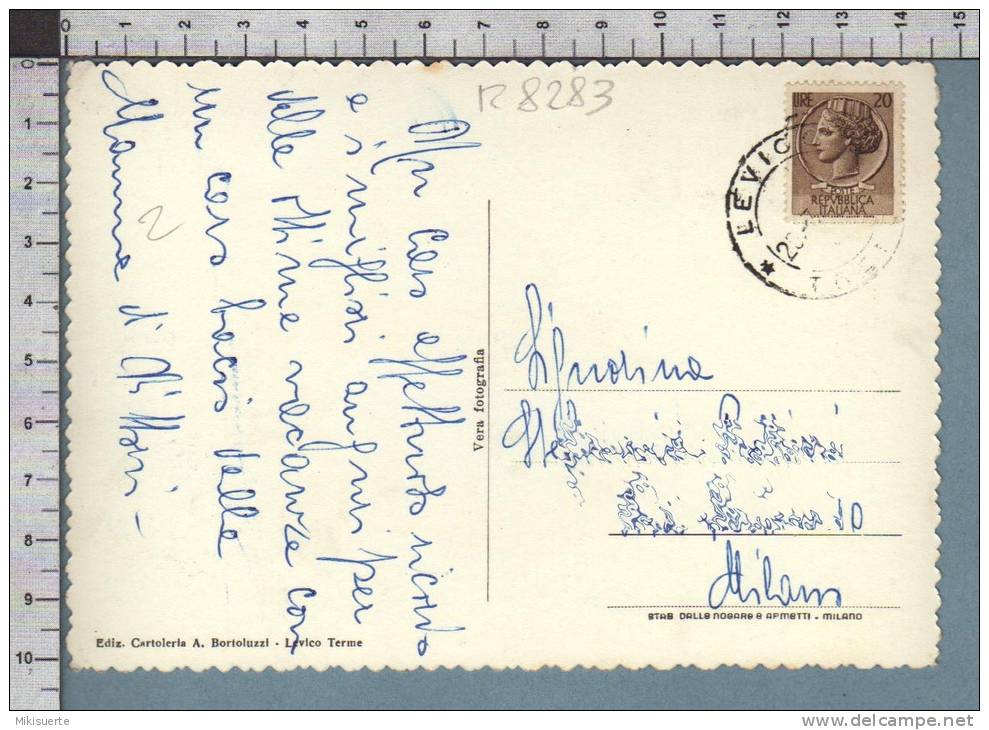 R 8283
LIRE 20
POSTE
REPVBBLICA
ITALIANA
LEVICO
Un caro affettuoso ricordo
e i migliori auguri per
delle ottime vacanze con
un caro bacio dalla
Mamma di
Vera fotografia
Signorina
Milano
STAB DALLE NOGARE E ARMETTI - MILANO
Ediz. Cartoleria A. Bortoluzzi - Levico Terme
2
0 1 2 3 4 5 6 7 8 9 10 11 12 13 14 15
0
1
2
3
4
5
6
7
8
9
10
Mikisuerte
www.delcampe.net